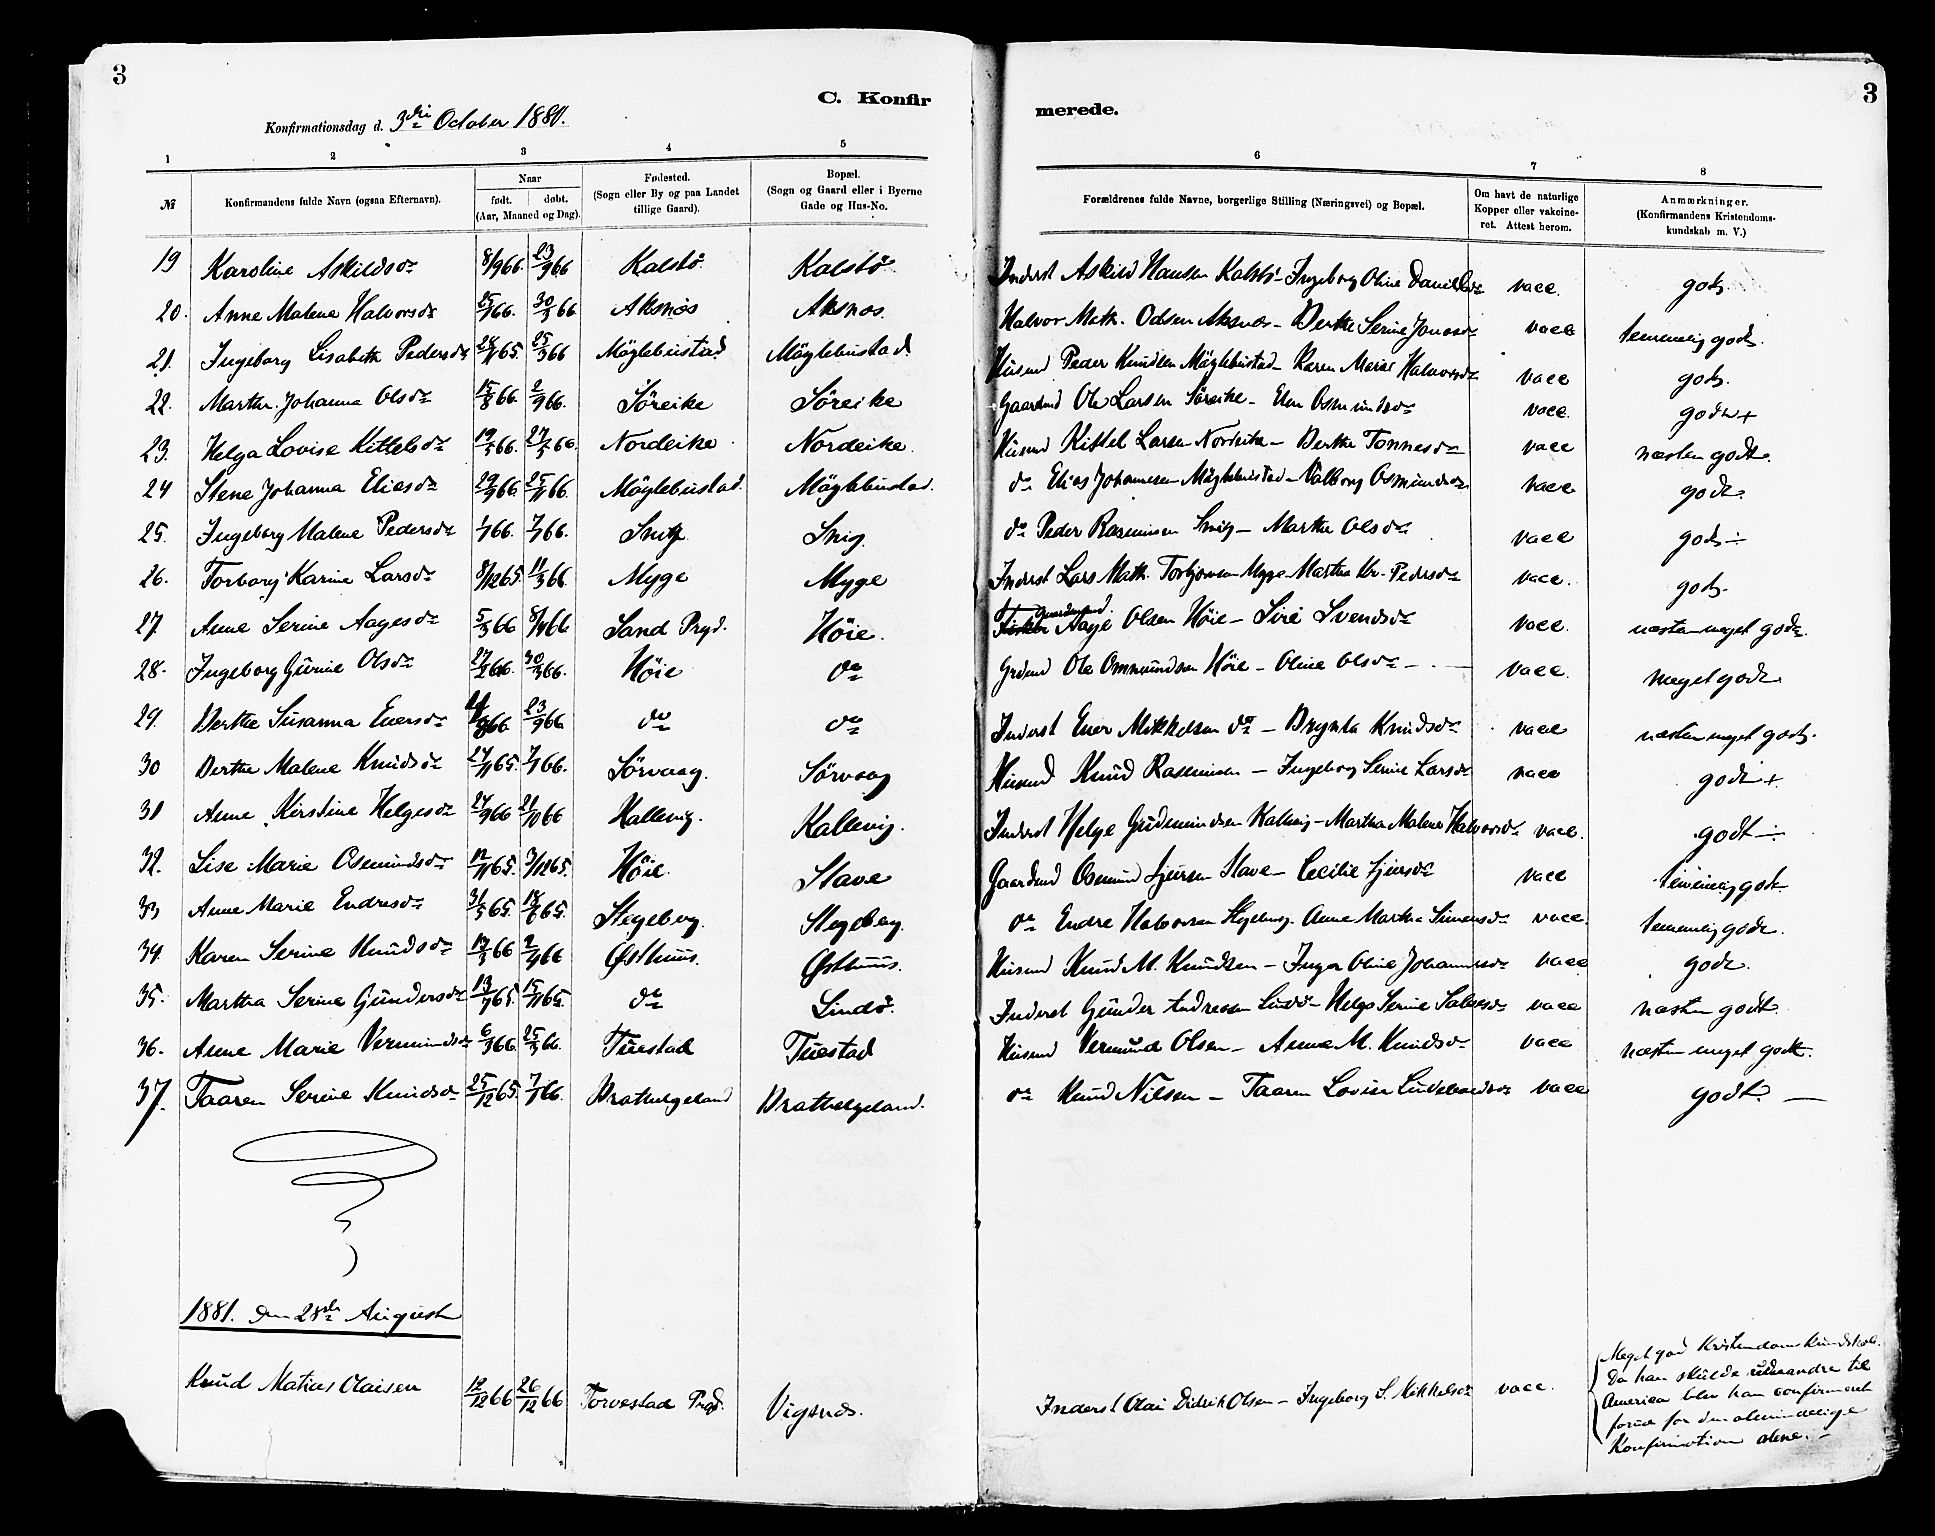 3
C. Konfir
merede.
3
Konfirmationsdag d. 3die October 1881.
1 2 3 4 5 6 7 8
№
Konfirmandens fulde Navn (ogsaa Efternavn).
Naar
født. døbt.
(Aar, Maaned og Dag).
Fødested.
(Sogn eller By og paa Landet
tillige Gaard).
Bopæl.
(Sogn og Gaard eller i Byerne
Gade og Hus-No.
Forældrenes fulde Navne, borgerlige Stilling (Næringsvei) og Bopæl.
Om havt de naturlige
Kopper eller vakcine-
ret. Attest herom.
Anmærkninger.
(Konfirmandens Kristendoms-
kundskab m. V.)
19 Karoline Askildsdr 8/9 66. 23/9 66 Kalstö. Kalstö. Inderst Askild Hansen Kalstö - Ingeborg Oline Danielsdr vacc. godt.
20. Anne Malene Halvorsdr 25/1 66. 30/3 66 Aksnæs Aksnæs. Halvor Math. Odsen Aksnæs - Berthe Serine Jonasdr vacc temmelig godt.
21. Ingeborg Lisabeth Pedersdr 28/11 65. 25/3 66 Möglebustad Möglebustad. Husmd Peder Knudsen Möglebustad - Karen Marie Halvorsdr vacc godt.
22. Marthe Johanna Olsdr 15/8 66. 2/9 66. Söreike Söreike Gaardmd Ole Larsen Söreike - Elen Osmundsdr vacc. godt +
23. Helga Lovise Kittelsdr 19/5 66. 27/5 66. Nordeike Nordeike. Husmd Kittel Larsen Nordeike - Berthe Tonnesdr vacc næsten godt.
24 Stene Johanna Eliasdr 29/9 66. 25/11 66 Möglebustad. Möglebustad. do Elias Johannesen Möglebustad - Valborg Osmundsdr vacc godt.
25. Ingeborg Malene Pedersdr 1/1 66. 7/1 66. Snig Snig. do Peder Rasmusen Snig - Marthe Olsdr vacc godt ÷
26. Torborg Karine Larsdr 8/12 65. 11/3 66. Myge Myge Inderst Lars Math. Torbjornsen Myge - Martha Kr. Pedersdr vacc. godt.
27 Anne Serine Aagesdr 5/3 66 8/4 66. Sand Prgd. Höie. Gaardmand. Aage Olsen Höie - Siri Svendsdr vacc. næsten meget godt.
28. Ingeborg Gurine Olsdr 27/2 66. 30/3 66. Höie do Grdmd Ole Ommundsen Höie - Oline Olsdr - vacc. meget godt
29. Berthe Susanna Enersdr 66 23/9 66 do do Inderst Ener Mikkelsen do - Brynla Knudsdr vacc næsten meget godt.
30 Berthe Malene Knudsdr 27/11 65. 7/1 66. Sörvaag. Sörvaag Husmd Knud Rasmusen - Ingeborg Serine Larsdr vacc godt +
31 Anne Kirstine Helgesdr 27/9 66 21/10 66 Kallevig. Kallevig. Inderst Helge Gudmundsen Kallevig - Martha Malene Halvorsdr vacc. godt ÷
32. Lise Marie Osmundsdr 12/11 65. 3/12 65. Höie. Stave Gaardmd Osmund Sjursen Stave - Cecilie Sjursdr vacc temmelig godt
33 Anne Marie Endresdr 31/5 65. 18/6 65. Stegeberg. Stegeberg. do Endre Halvorsen Stegeberg - Anne Martha Simonsdr vacc. temmelig godt.
34. Karen Serine Knudsdr 17/3 66 2/4 66 Østhuus. Østhuus. Husmd Knud M. Knudsen - Inger Oline Johannesdr vacc godt.
35. Martha Serine Gundersdr 13/7 65. 15/11 65. do Lindö. Inderst Gunder Andreasen Lindö - Helga Serine Salvesdr vacc næsten godt
36. Anne Marie Vermundsdr 6/3 66. 25/3 66. Tuestad Tuestad Husmd Vermund Olsen - Anne M. Knudsdr vacc næsten meget godt.
37. Taaren Serine Knudsdr 25/12 65. 7/1 66. Brathelgeland Brathelgeland. do Knud Nilsen - Taaren Lovise vacc godt. -
1881. den 28de August
Knud Matias Olaisen 12/12 66 26/12 66 Torvestad Prgd. Vigsnæs. Inderst Olai Didrik Olsen - Ingeborg S. Mikkelsdr vacc.
Meget god Kristendomskundskab.
Da han skulde udvandre til
America blev han confirmeret
forud for den almindelige
Konfirmation alene. -